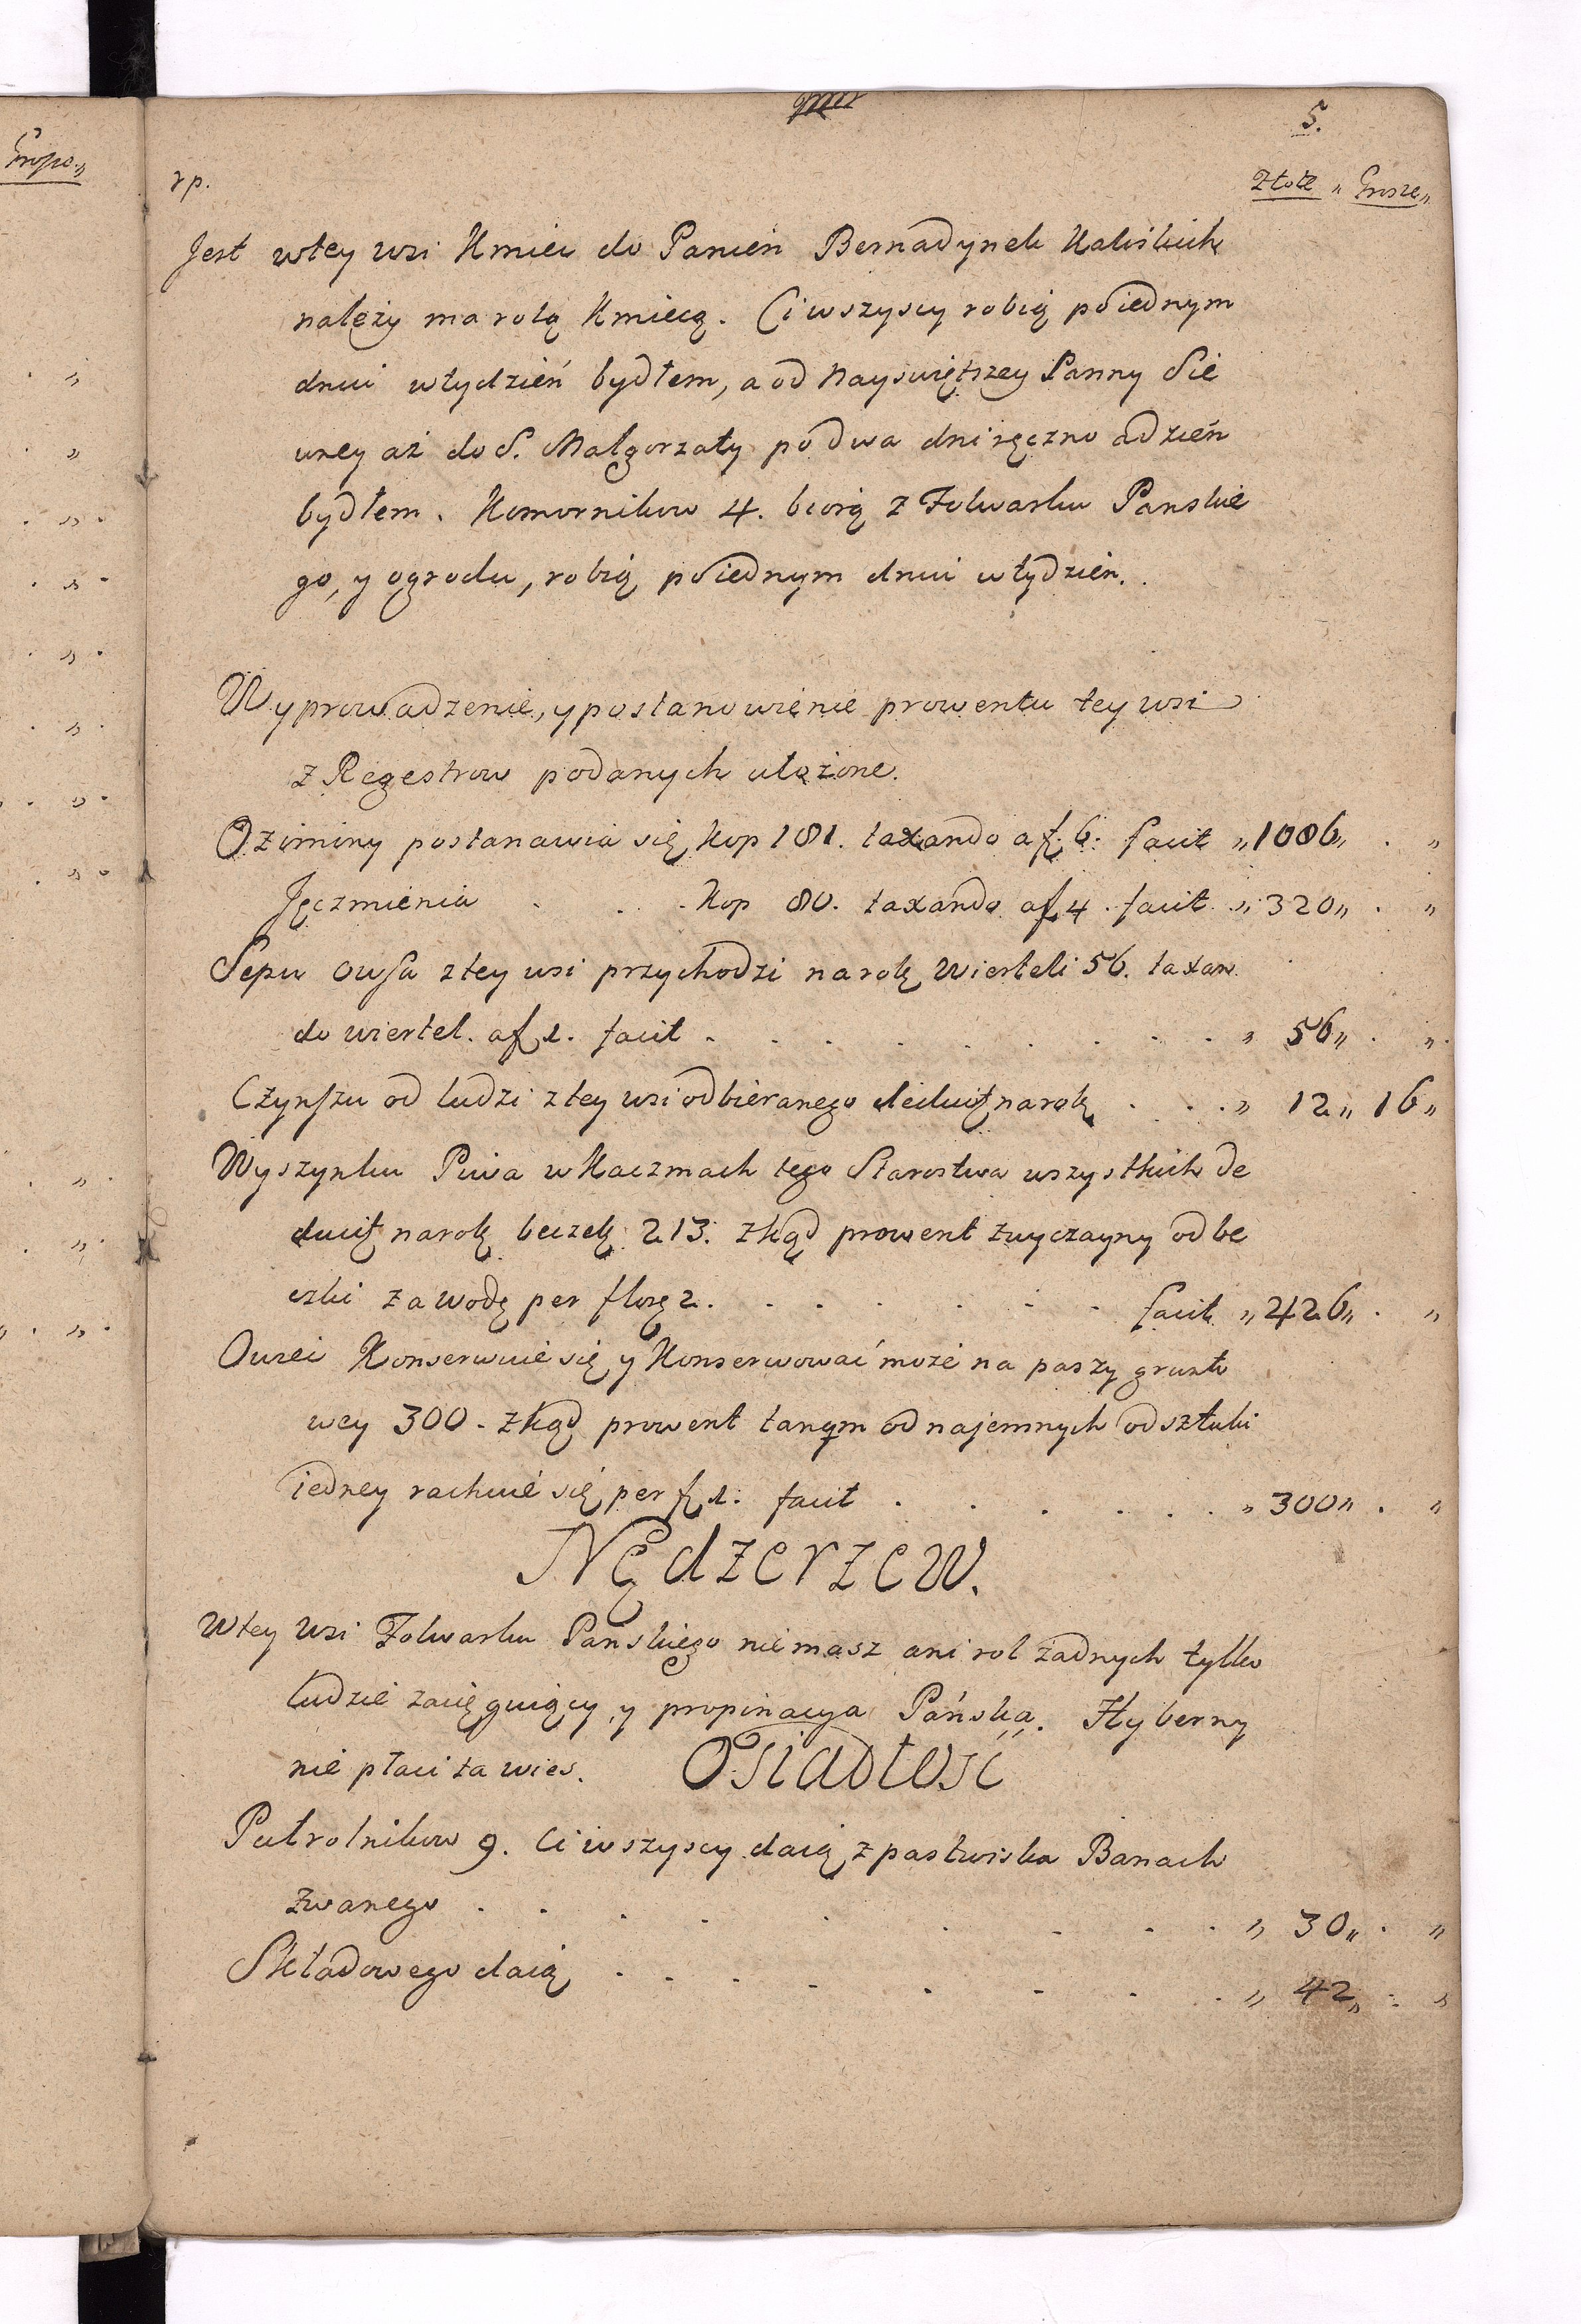 5.
rp.
Złote „ Grosze„
Jest wtey wsi Kmiec do Panien Bernadynek Kaliskich
należy ma rolą Kmiecą. Ci wszyscy robią poiednym
dniu wtydzień bydłem, a od Nayswiętszey Panny Sie
wney aż do S. Małgorzaty po dwa dni ręczno a dzień
bydłem. Komornikow 4. biorą z Folwarku Panskie
go, y ogrodu, robią poiednym dniu wtydzien.
Wyprowadzenie, y postanowienie prowentu tey wsi
z Regestrow podanych ułożone.
Oziminy postanawia się Kop 181. taxando a f. 6. facit „ 1086 „ . „
Jęczmienia . . . Kop 80. taxando a f 4. facit „ 320 „ . „
Sepu owsa z tey wsi przychodzi na rok Wierteli 56. taxan
do wiertel. a f 1. facit . . . . . . . . „ 56 „ . „
Czynszu od ludzi z tey wsi odbieranego na rok . . . „ 12 „ 16 „
Wyszynku Piwa w Kaczmach tego Starostwa wszystkich de
na rok beczek 213. zkąd prowent zwyczayny od be
czki za wodę per 2. . . . . . . . facit „ 426 „ . „
Owiec Konserwuie się y Konserwować może na paszy grunto
wey 300. zkąd prowent tanqm od najemnych od sztuki
iedney rachuie się per f 1. facit . . . . . . „ 300 „ . „
Nędzerzew.
W tey Wsi Folwarku Panskiego nie masz ani rol żadnych tylko
ludzie zaciągaiący, y propinacya Pańska. Hyberny
nie płaci ta wies. Osiadłość
Pułrolnikow 9. Ci wszyscy daią z pastwiska Banach
zwanego . . . . . . . . „ 30 „ . „
Składowego daią . . . . . . . . „ 42 „ . „